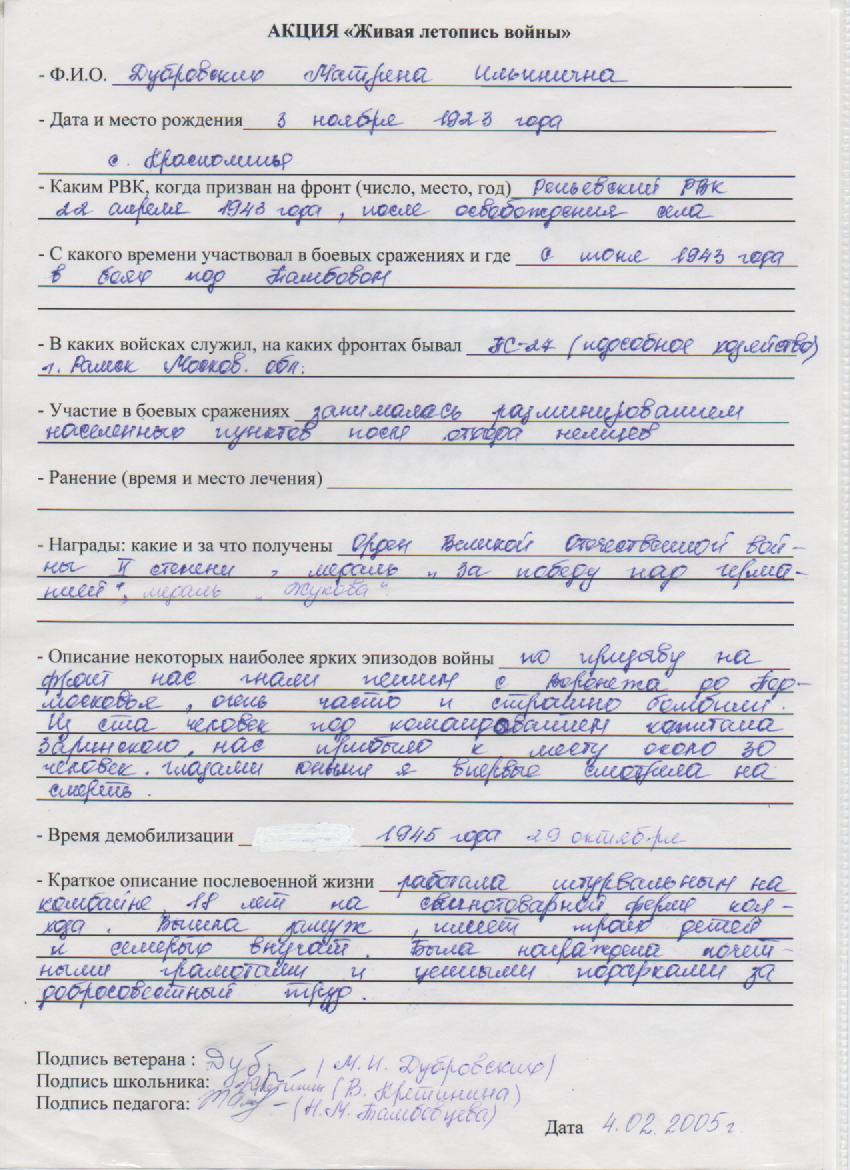 АКЦИЯ «Живая летопись войны»
- Ф.И.О. Дубровских Матрена Ильинична
- Дата и место рождения 3 ноября 1923 года
с. Краснолипье
- Каким РВК, когда призван на фронт (число, место, год) Репьевский РВК
22 апреля 1943 года, после освобождения села
- С какого времени участвовал в боевых сражениях и где с июня 1943 года
в боях под Тамбовом
- В каких войсках служил, на каких фронтах бывал ПС-27 (подсобное хозяйство)
г. Раменск Москов. обл.
- Участие в боевых сражениях занималась разминированием
населенных пунктов после отхода немцев
- Ранение (время и место лечения)
- Награды: какие и за что получены Орден Великой Отечественной вой-
ны II степени, медаль „За победу над Герма-
нией", медаль „Жукова"
- Описание некоторых наиболее ярких эпизодов войны по призыву на
фронт нас гнали пешим с Воронежа до Под-
московья, очень часто и страшно бомбили.
Из ста человек под командованием капитана
Заринского, нас прибыло к месту около 30
человек. глазами юными я впервые смотрела на
смерть.
- Время демобилизации 1945 года 29 октября
- Краткое описание послевоенной жизни работала штурвальным на
комбайне, 18 лет на свинотоварной ферме кол-
хоза. Вышла замуж, имеет троих детей
и семерых внучат. Была награждена почет-
ными грамотами и ценными подарками за
добросовестный труд.
Подпись ветерана : Дуб (М.И. Дубровских)
Подпись школьника: (В. Кретинина)
Подпись педагога: (Н.М. Тамбовцева)
Дата 4.02.2005 г.